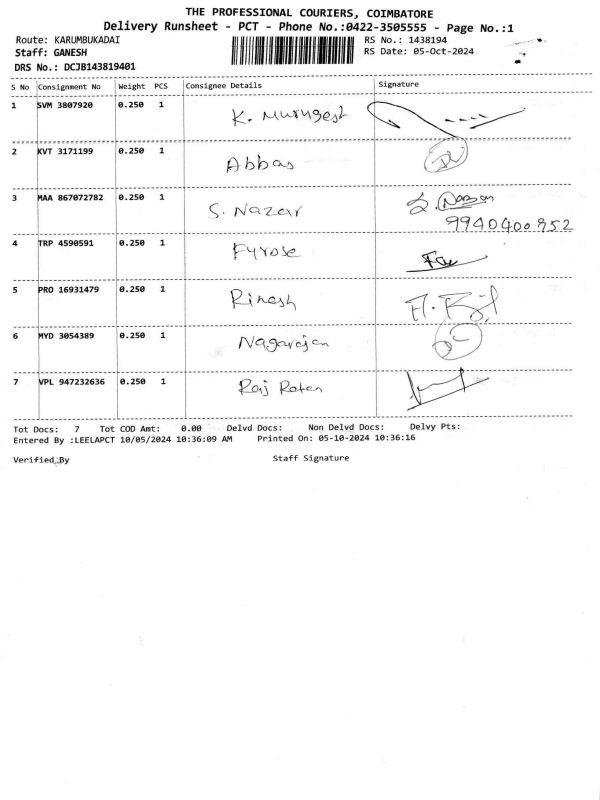 THE PROFESSIONAL COURIERS, COIMBATORE
Delivery Runsheet - PCT - Phone No.:0422-3505555 - Page No.:1
Route: KARUMBUKADAI RS No.: 1438194
Staff: GANESH RS Date: 05-Oct-2024
DRS No.: DCJB143819401
S No Consignment No Weight PCS Consignee Details Signature
1 SVM 3807920 0.250 1 K. Murugesh
2 KVT 3171199 0.250 1 Abbas
3 MAA 867072782 0.250 1 S. Nazar
9940400952
4 TRP 4590591 0.250 1 Fyrose
5 PRO 16931479 0.250 1 Rinesh
6 MYD 3054389 0.250 1 Nagarajan
7 VPL 947232636 0.250 1 Raj Ratan
Tot Docs: 7 Tot COD Amt: 0.00 Delvd Docs: Non Delvd Docs: Delvy Pts:
Entered By :LEELAPCT 10/05/2024 10:36:09 AM Printed On: 05-10-2024 10:36:16
Verified By Staff Signature